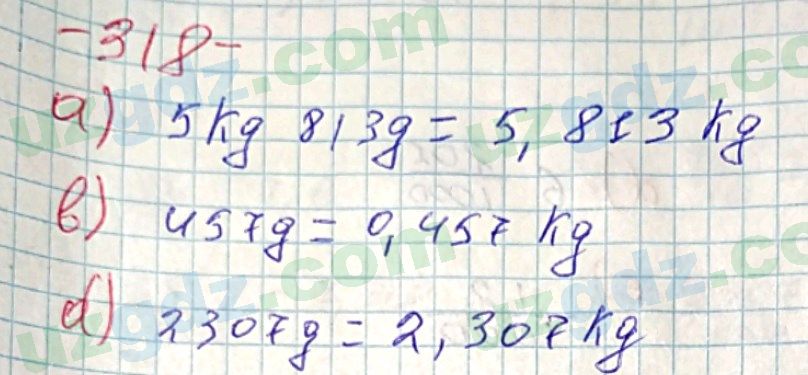 -318-
a) 5kg 813g = 5,813 kg
b) 457g = 0,457 kg
d) 2307g = 2,307 kg
uzgdz.com